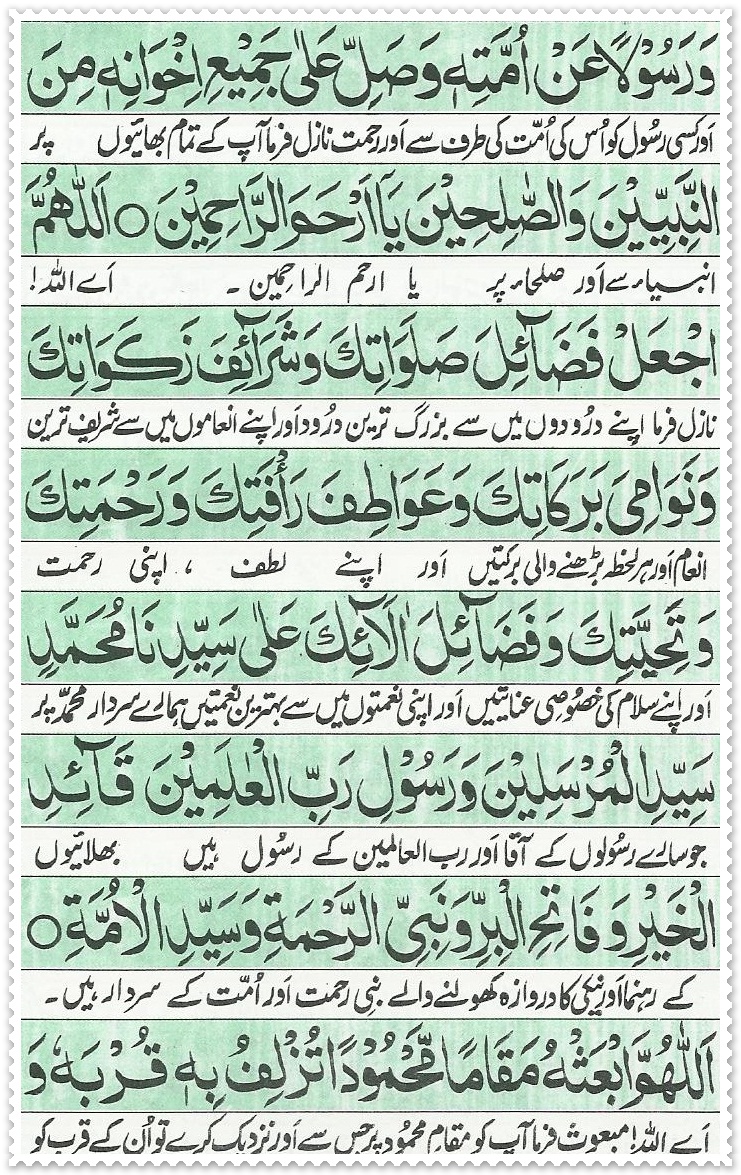 وَرَسُوْلًا عَنْ اُمَّتِهٖ وَصَلِّ عَلٰی جَمِیْعِ اِخْوَانِهٖ مِنَ
اَور کسی رسُول کو اُس کی اُمّت کی طرف سے اَور رحمت نازل فرما آپ کے تمام بھائیوں پر
النَّبِیِّیْنَ وَالصّٰلِحِیْنَ یَآ اَرْحَمَ الرَّاحِمِیْنَ ○ اَللّٰهُمَّ
انبیاء سے اَور صلحاء پر یا ارحم الراحمین ۔ اَے اللہ !
اجْعَلْ فَضَآئِلَ صَلَوَاتِكَ وَشَرَآئِفَ زَكَوَاتِكَ
نازل فرما اپنے درُودوں میں سے بزرگ ترین درُود اَور اپنے انعاموں میں سے شریف ترین
وَنَوَامِیَ بَرَكَاتِكَ وَعَوَاطِفَ رَأْفَتِكَ وَرَحْمَتِكَ
انعام اَور ہر لحظہ بڑھنے والی برکتیں اَور اپنے لطف ، اپنی رحمت
وَتَحِیَّتِكَ وَفَضَآئِلَ اٰلَآئِكَ عَلٰی سَیِّدِنَا مُحَمَّدٍ
اَور اپنے سلام کی خصُوصی عنایتیں اَور اپنی نعمتوں میں سے بہترین نعمتیں ہمارے سردار محمدؐ پر
سَیِّدِ الْمُرْسَلِیْنَ وَرَسُوْلِ رَبِّ الْعٰلَمِیْنَ قَآئِدِ
جو سارے رسُولوں کے آقا اَور رب العالمین کے رسُول ہیں بھلائیوں
الْخَیْرِ وَفَاتِحِ الْبِرِّ وَنَبِیِّ الرَّحْمَةِ وَسَیِّدِ الْاُمَّةِ ○
کے رہنما اَور نیکی کا دروازہ کھولنے والے نبی رحمت اَور اُمّت کے سردار ہیں ۔
اَللّٰهُمَّ ابْعَثْهُ مَقَامًا مَّحْمُوْدًا تُزْلِفُ بِهٖ قُرْبَهٗ وَ
اَے اللہ ! مبعوث فرما آپ کو مقام محمُود پر جس سے اَور نزدیک کرے تو اُن کے قرب کو